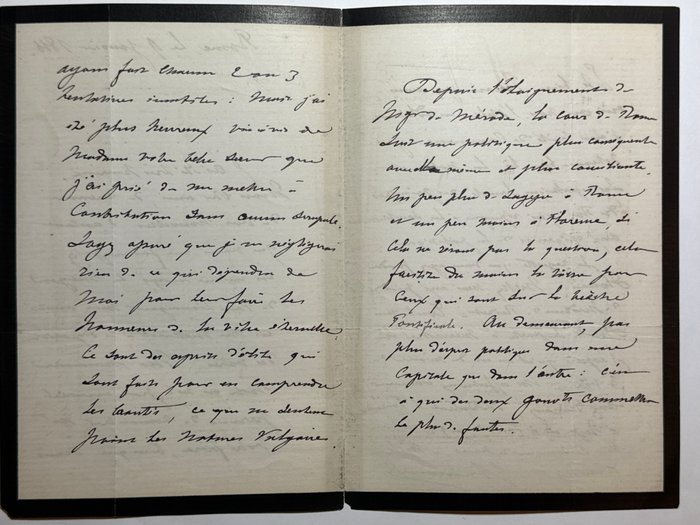 ayant fait chacun 2 ou 3
tentatives inutiles : mais j'ai
été plus heureux vis-à-vis de
Madame votre belle sœur que
j'ai prié de me mettre à
Contribution sans aucun scrupule.
Soyez assuré que je ne négligerai
rien de ce qui dépendra de
moi pour leur faire les
honneurs de la ville éternelle.
Ce sont des esprits d'élite qui
sont faits pour en comprendre
les beautés, ce que ne sentent
point les natures vulgaires.
Depuis l'éloignement de
Mgr de Mérode, la cour de Rome
suit une politique plus conséquente
avec elle même et plus conciliante.
Un peu plus de sagesse à Rome
et un peu moins à Florence, si
cela ne résout pas la question, cela
facilite du moins la
ceux qui sont sur le théâtre
Pontificale. Au demeurant, pas
plus d'esprit politique dans une
Capitale que dans l'autre : c'est
à qui des deux commettra
le plus de fautes.